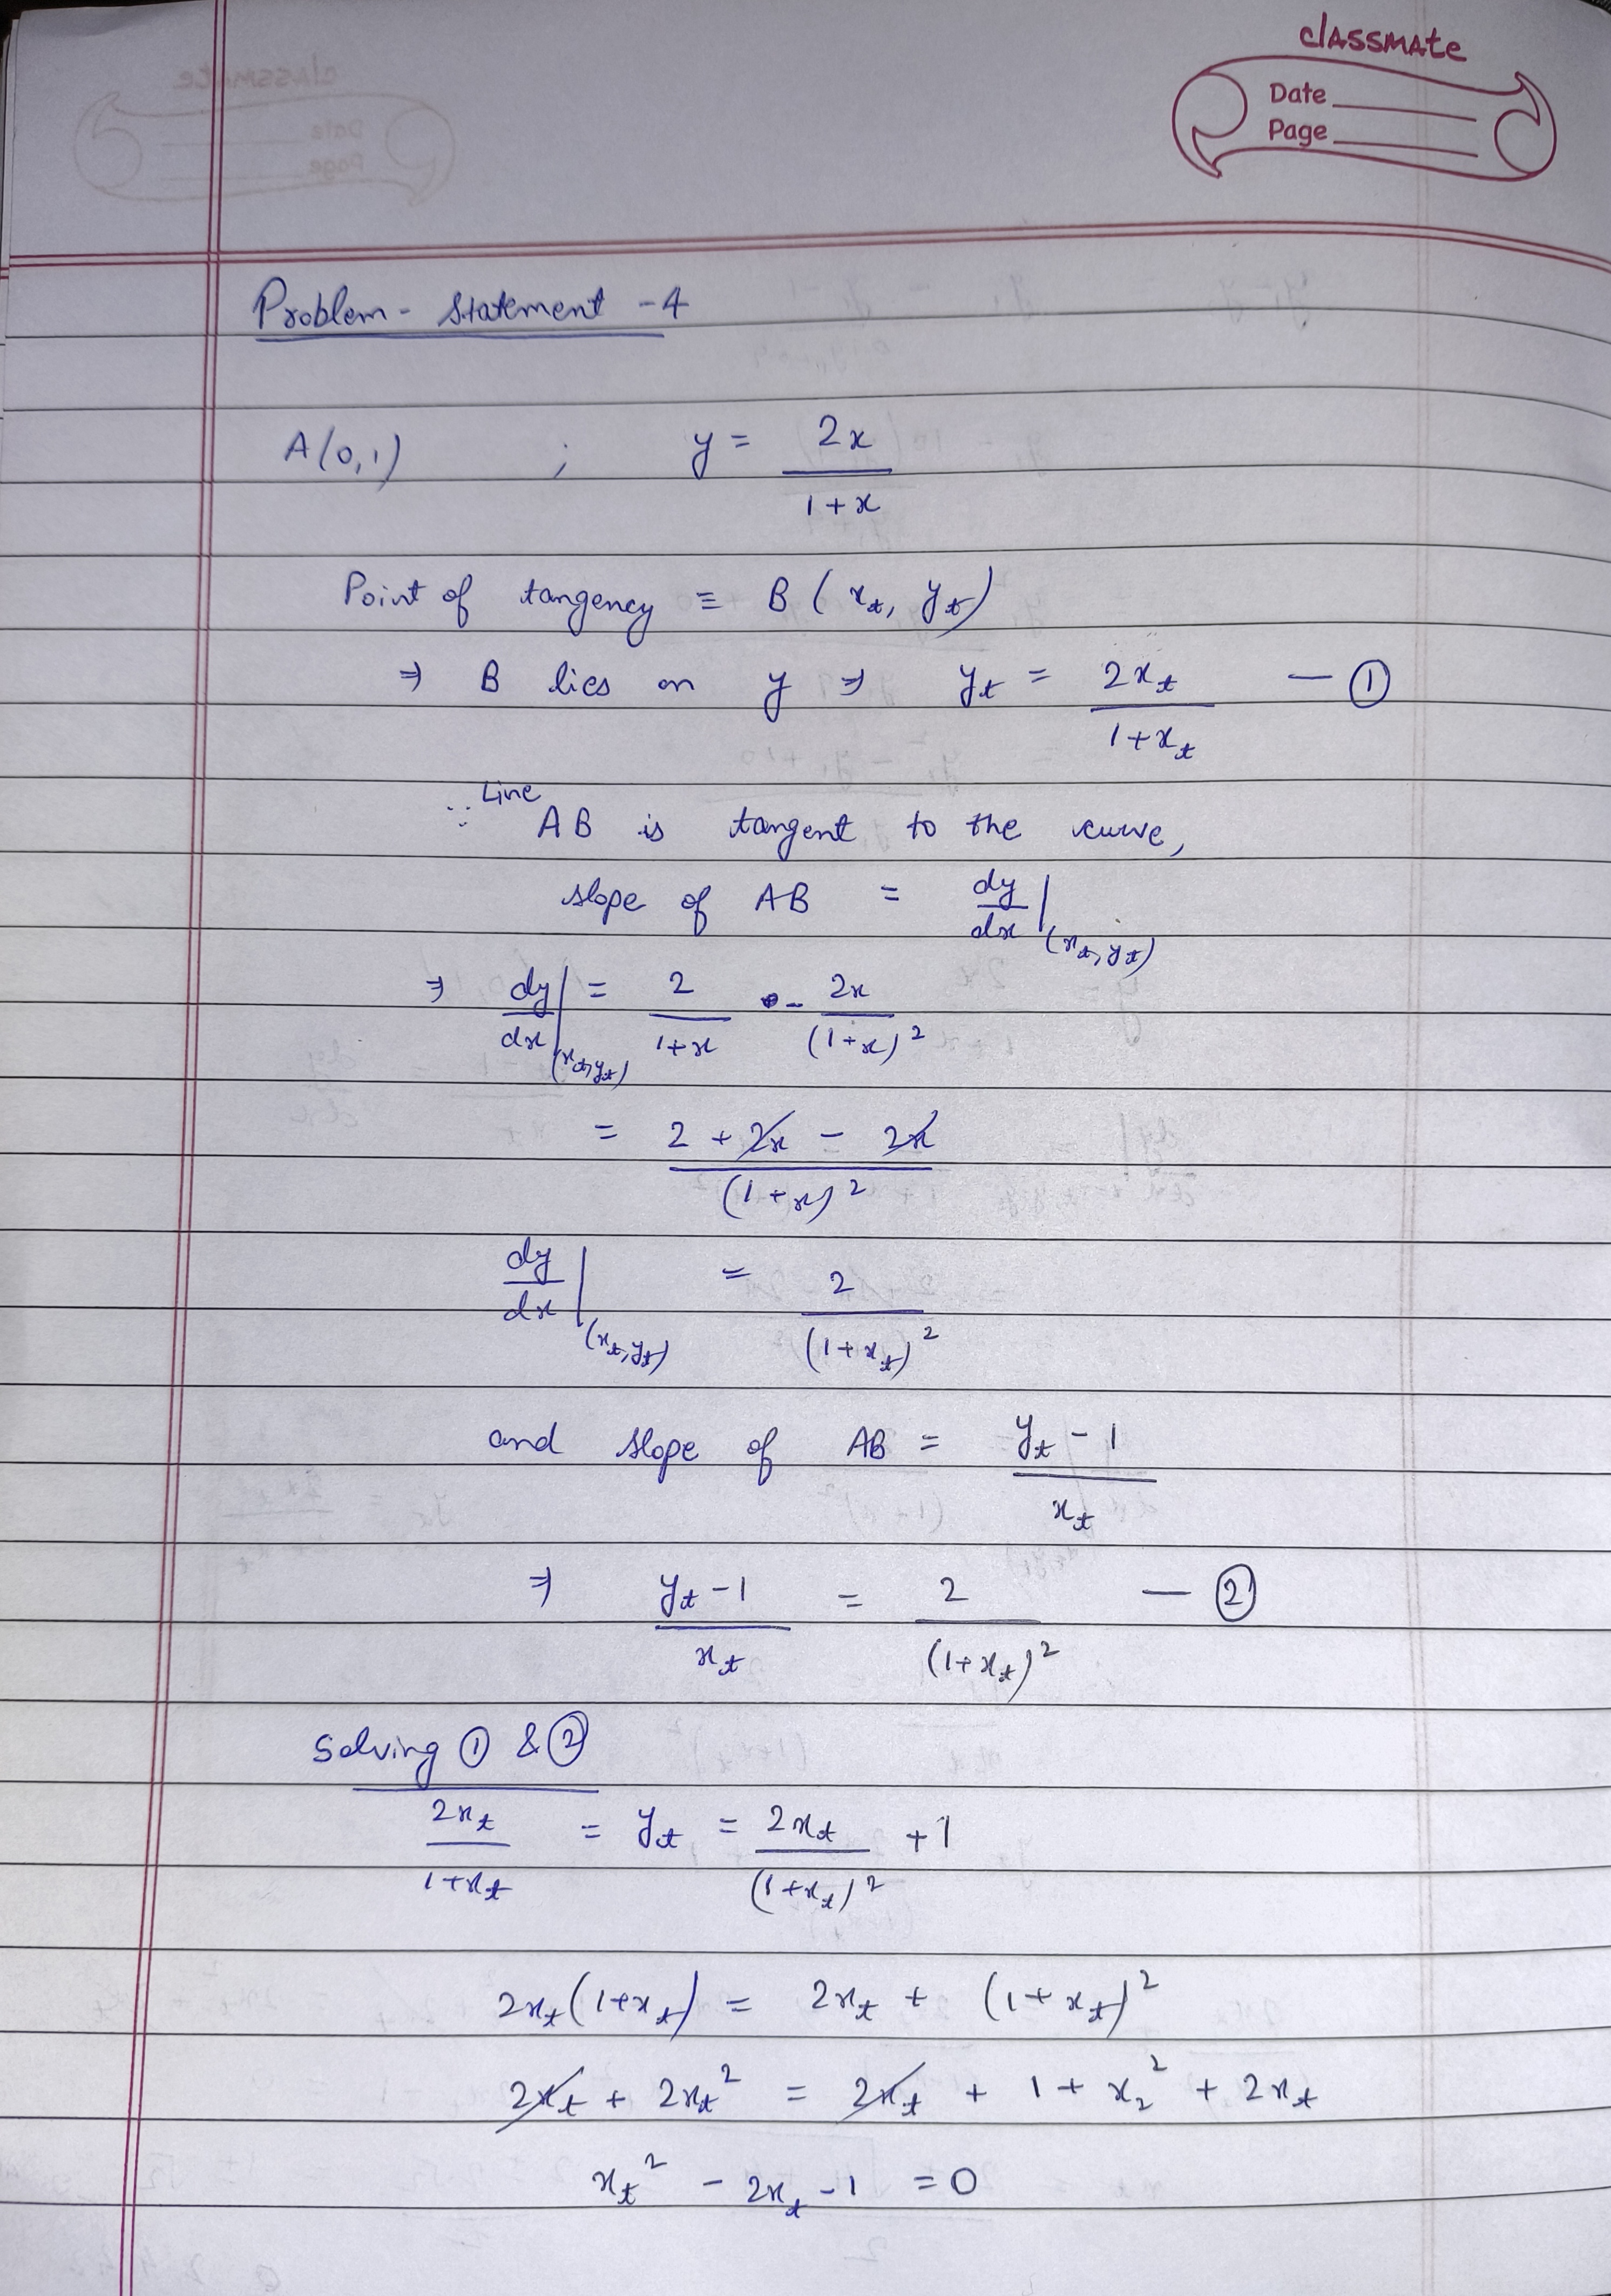 classmate
Date
Page
Problem - Statement - 4
A(0,1) ; y = 2x / (1+x)
Point of tangency ≡ B(x_t, y_t)
⇒ B lies on y ⇒ y_t = 2x_t / (1+x_t) — ①
∵ Line AB is tangent to the curve,
slope of AB = dy/dx |(x_t, y_t)
⇒ dy/dx |(x_t, y_t) = 2/(1+x) - 2x/(1+x)²
= (2 + 2x - 2x) / (1+x)²
dy/dx |(x_t, y_t) = 2/(1+x_t)²
and slope of AB = (y_t - 1) / x_t
⇒ (y_t - 1) / x_t = 2/(1+x_t)² — ②
Solving ① & ②
2x_t / (1+x_t) = y_t = 2x_t / (1+x_t)² + 1
2x_t(1+x_t) = 2x_t + (1+x_t)²
2x_t + 2x_t² = 2x_t + 1 + x_2² + 2x_t
x_t² - 2x_t - 1 = 0